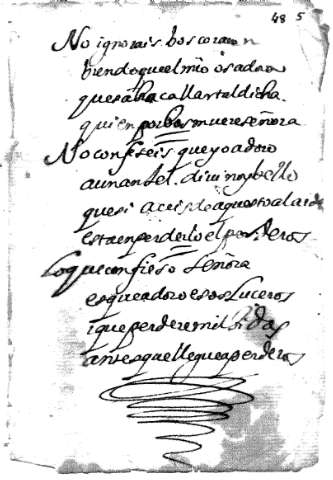 48 5
No ignorais bos
biendo que el mio os adora
que sabra callar tal dicha
quien por bos muere señora
No confeseis que yo adoro
aun diuino y bello
que si aceis de aquesto
esta en perderlo el perderos
Lo que confieso señora
es que adoro esos Luceros
i que perdere mil bidas
antes que llegue a perderos